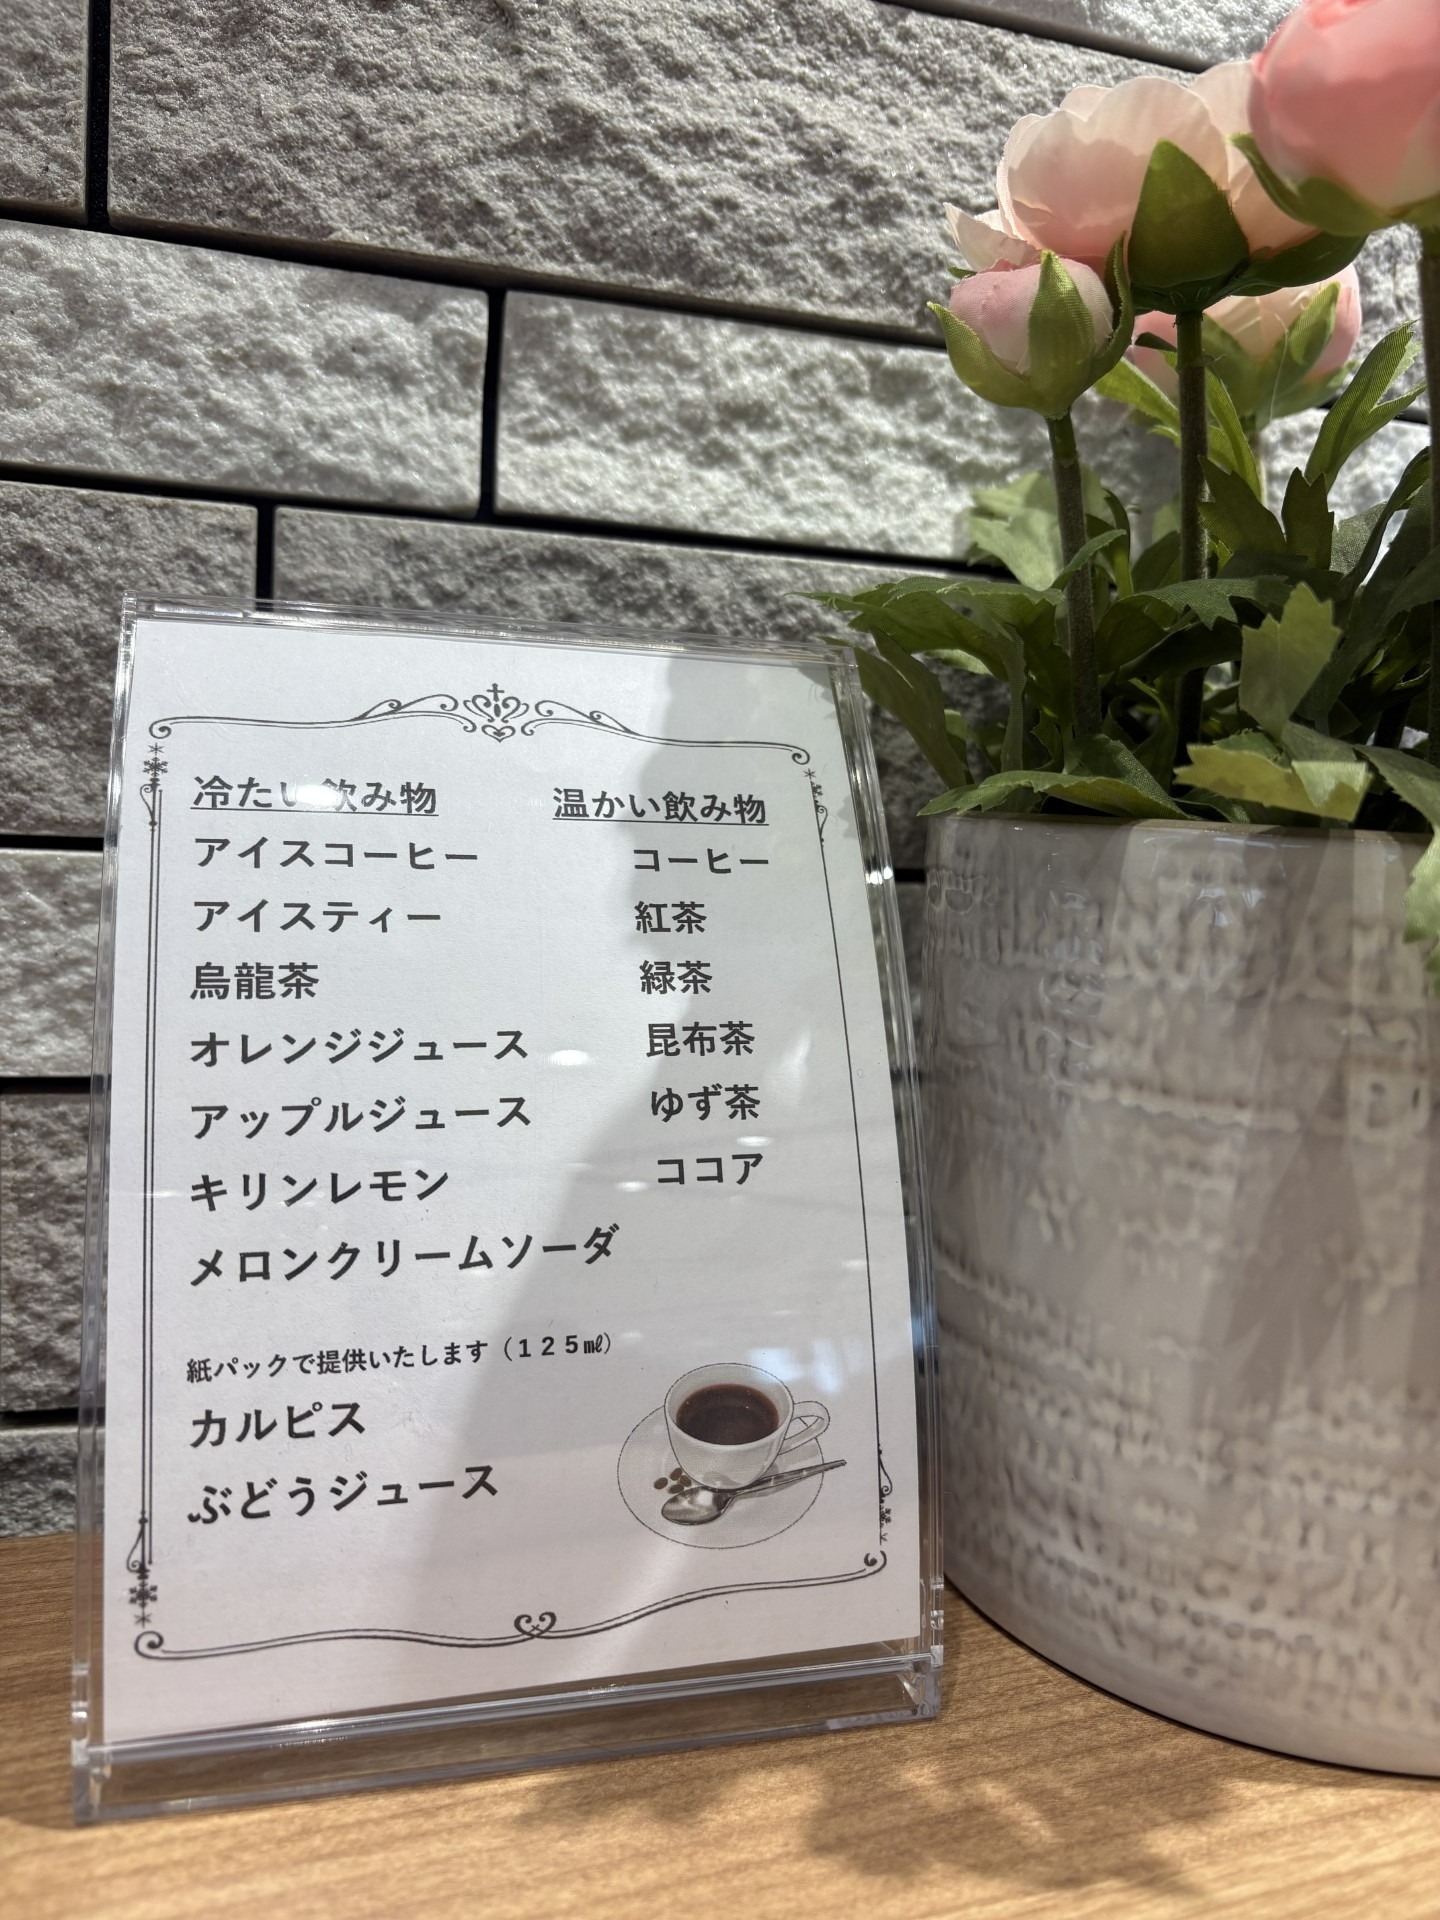 冷たい飲み物
アイスコーヒー
アイスティー
烏龍茶
オレンジジュース
アップルジュース
キリンレモン
メロンクリームソーダ
温かい飲み物
コーヒー
紅茶
緑茶
昆布茶
ゆず茶
ココア
紙パックで提供いたします（１２５㎖）
カルピス
ぶどうジュース